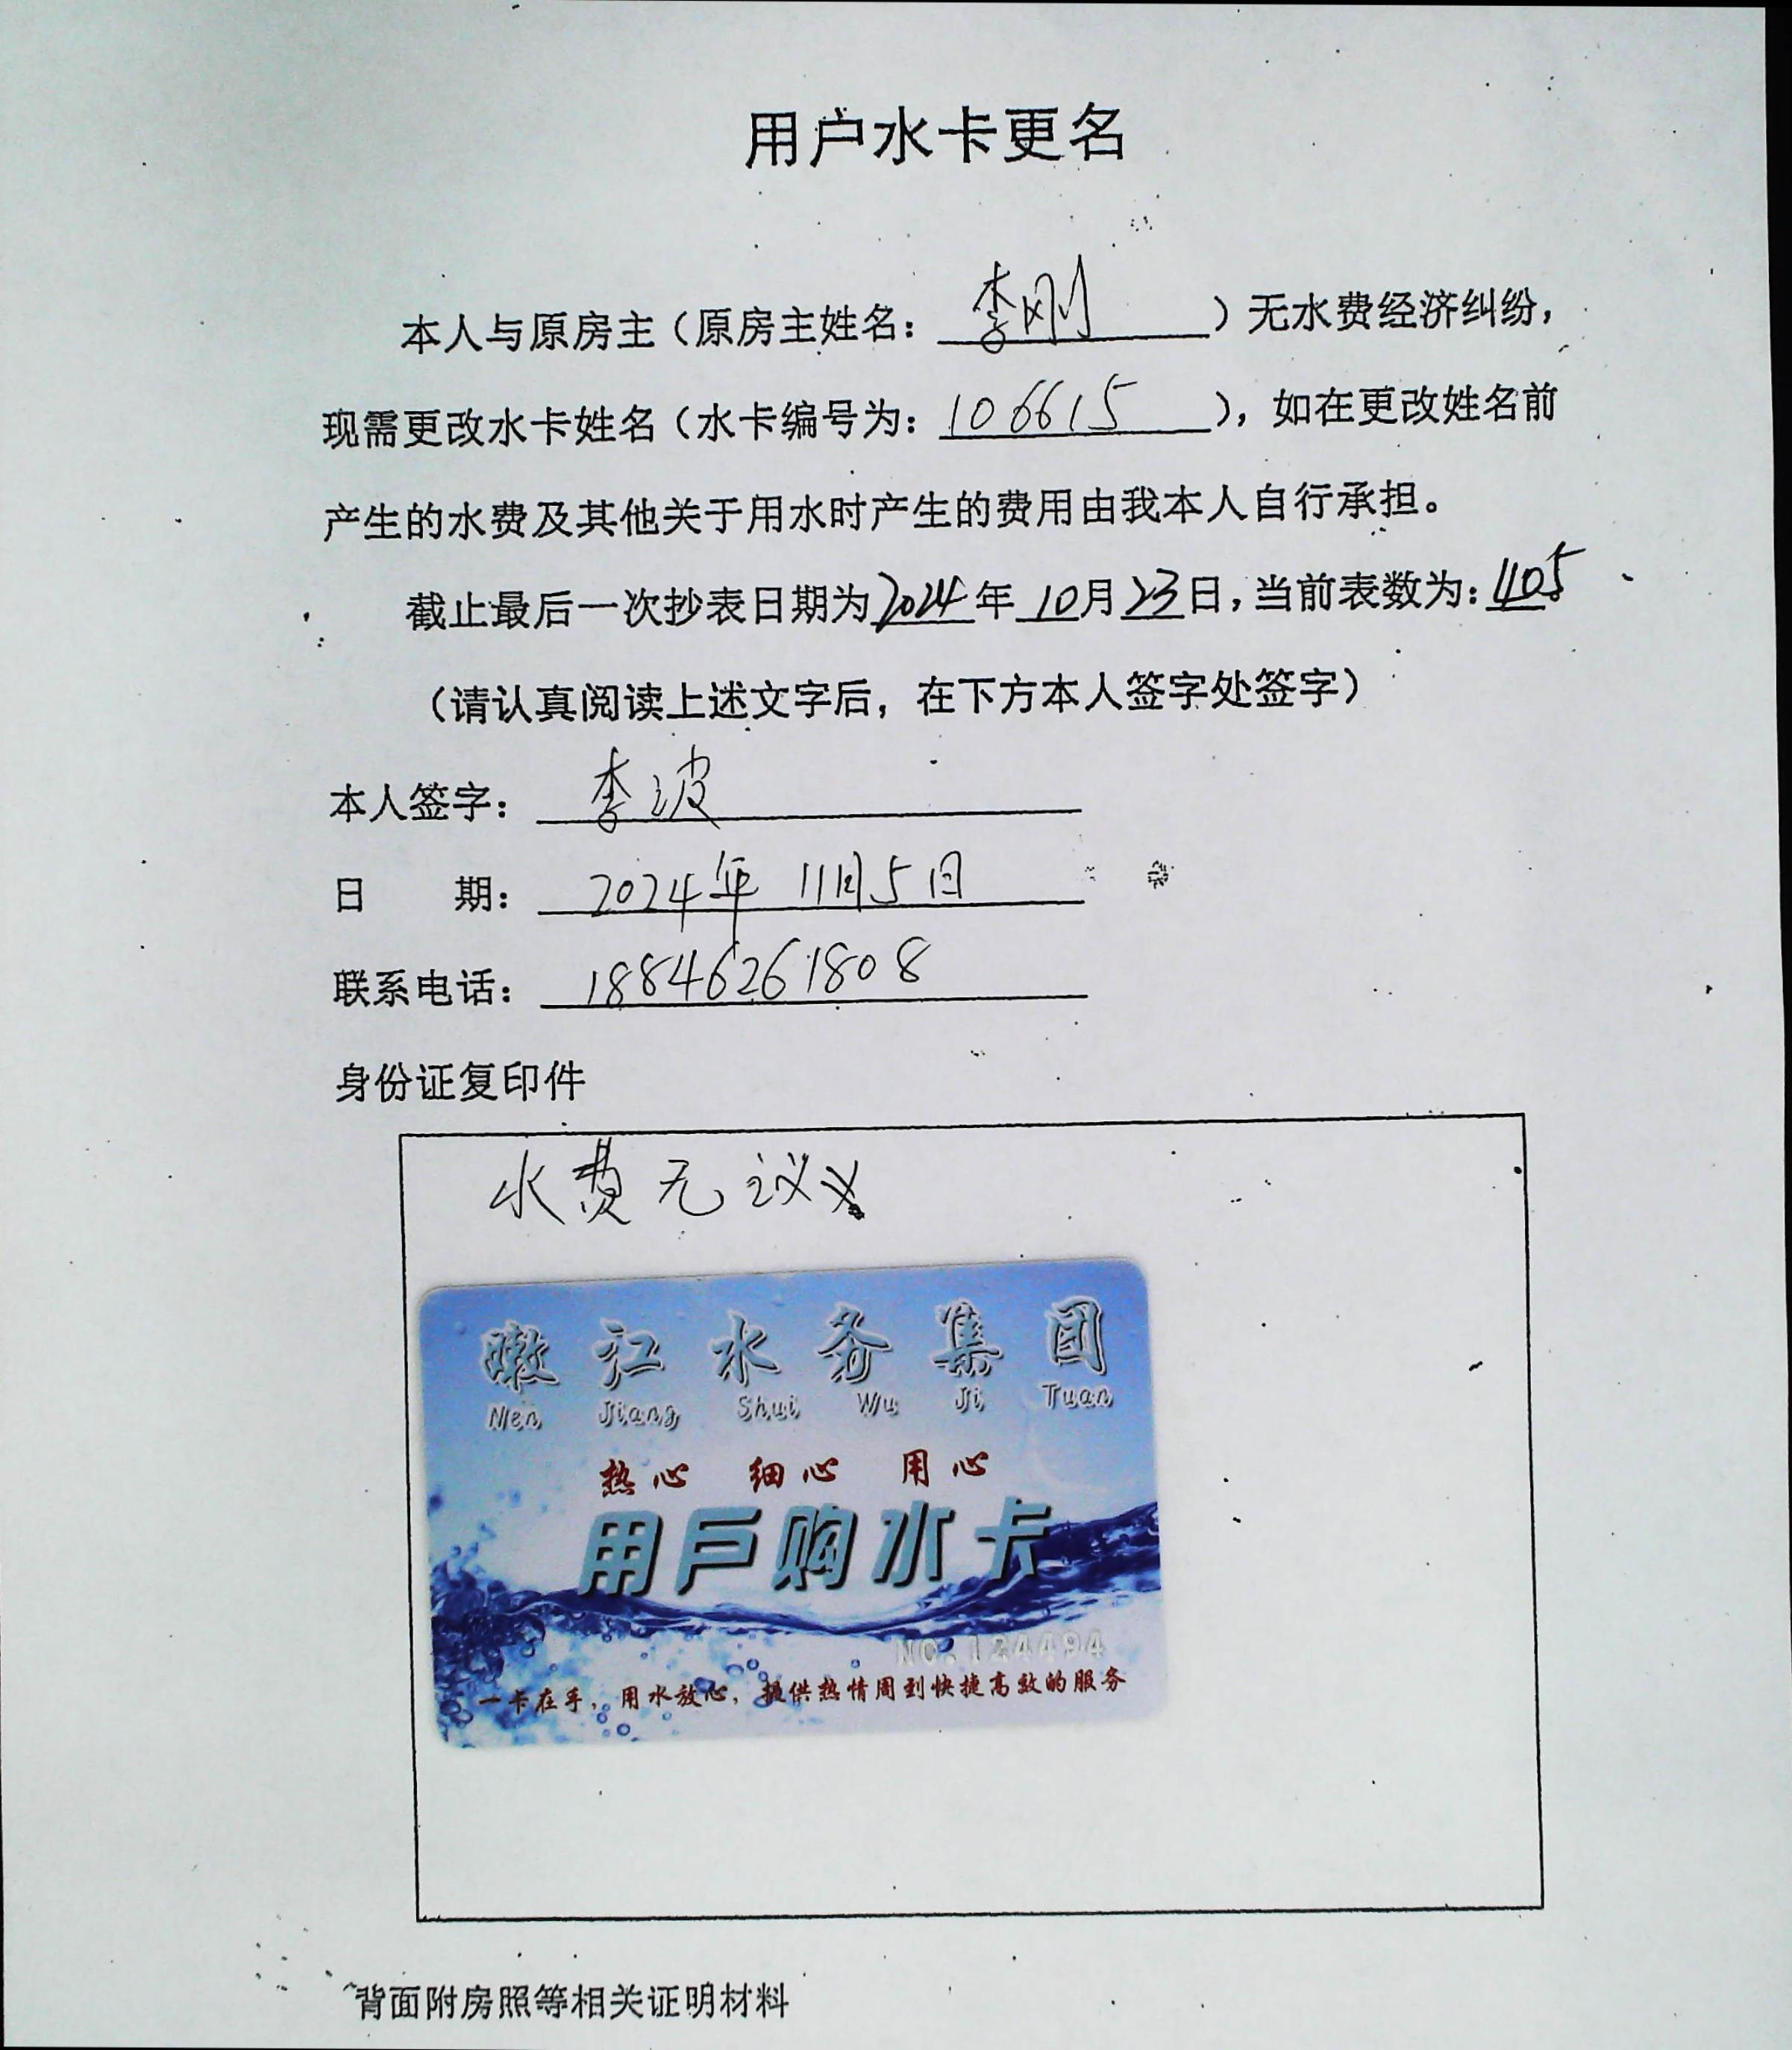 用户水卡更名
本人与原房主（原房主姓名：李刚）无水费经济纠纷，
现需更改水卡姓名（水卡编号为：106615），如在更改姓名前
产生的水费及其他关于用水时产生的费用由我本人自行承担。
截止最后一次抄表日期为2024年10月23日，当前表数为：1105
（请认真阅读上述文字后，在下方本人签字处签字）
本人签字：李波
日 期：2024年11月5日
联系电话：18846261808
身份证复印件
水费无议义
嫩江水务集团
Nen Jiang Shui Wu Ji Tuan
热心 细心 用心
用户购水卡
NO.124494
一卡在手，用水放心，提供热情周到快捷高效的服务
背面附房照等相关证明材料